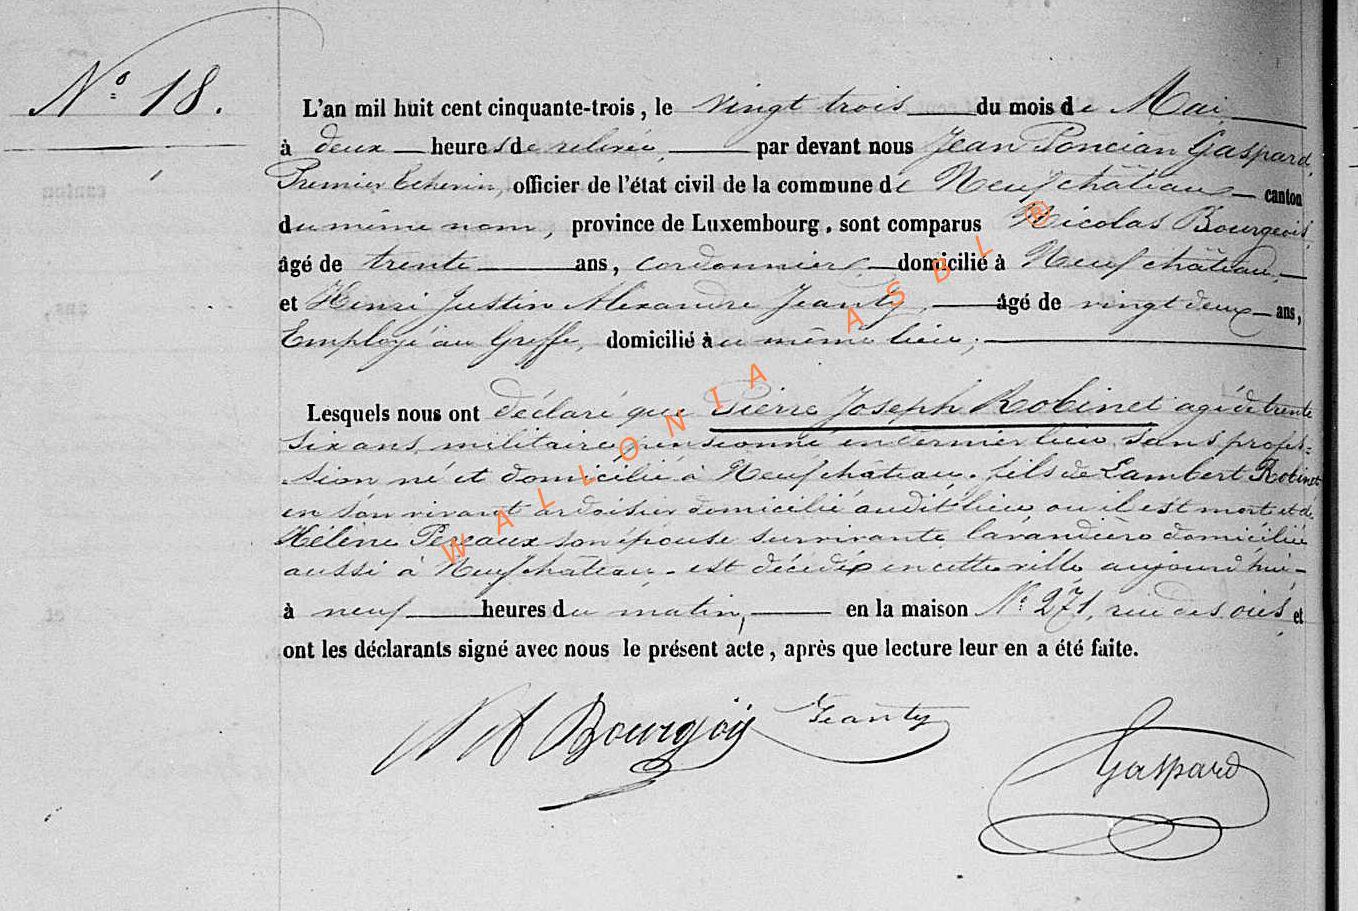 N° 18.
L'an mil huit cent cinquante-trois, le vingt trois du mois de Mai
à deux heures de relevée, par devant nous Jean Poncian Gaspard,
Premier Echevin, officier de l'état civil de la commune de Neufchâteau canton
du même nom, province de Luxembourg, sont comparus Nicolas Bourgeois,
âgé de trente ans, cordonnier, domicilié à Neufchâteau,
et Henri Justin Alexandre Jeanty, âgé de vingt deux ans,
Employé au Greffe, domicilié au même lieu;
Lesquels nous ont déclaré que Pierre Joseph Robinet agé de trente
six ans, militaire pensionné en dernier lieu sans profes=
sion né et domicilié à Neufchâteau, fils de Lambert Robinet
en son vivant ardoisier domicilié audit lieu où il est mort et de
Hélène Pereaux son épouse survivante lavandière domiciliée
aussi à Neufchâteau, est décédé en cette ville aujourd'hui
à neuf heures du matin, en la maison N° 271, rue des oies, et
ont les déclarants signé avec nous le présent acte, après que lecture leur en a été faite.
Bourgois Jeanty
Gaspard
WALLONIA ASBL ®